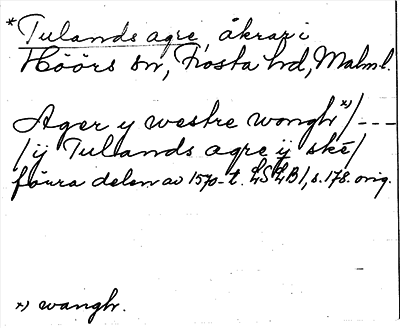 *Tulands agre, åkrar i
Höörs sn, Frosta hd, Malm l.
Ager y westre wongh x)/---
/ij Tulands agre ij ske/
förra delen av 1570-t. LSLB 1, s. 178. orig.
x) wangh.